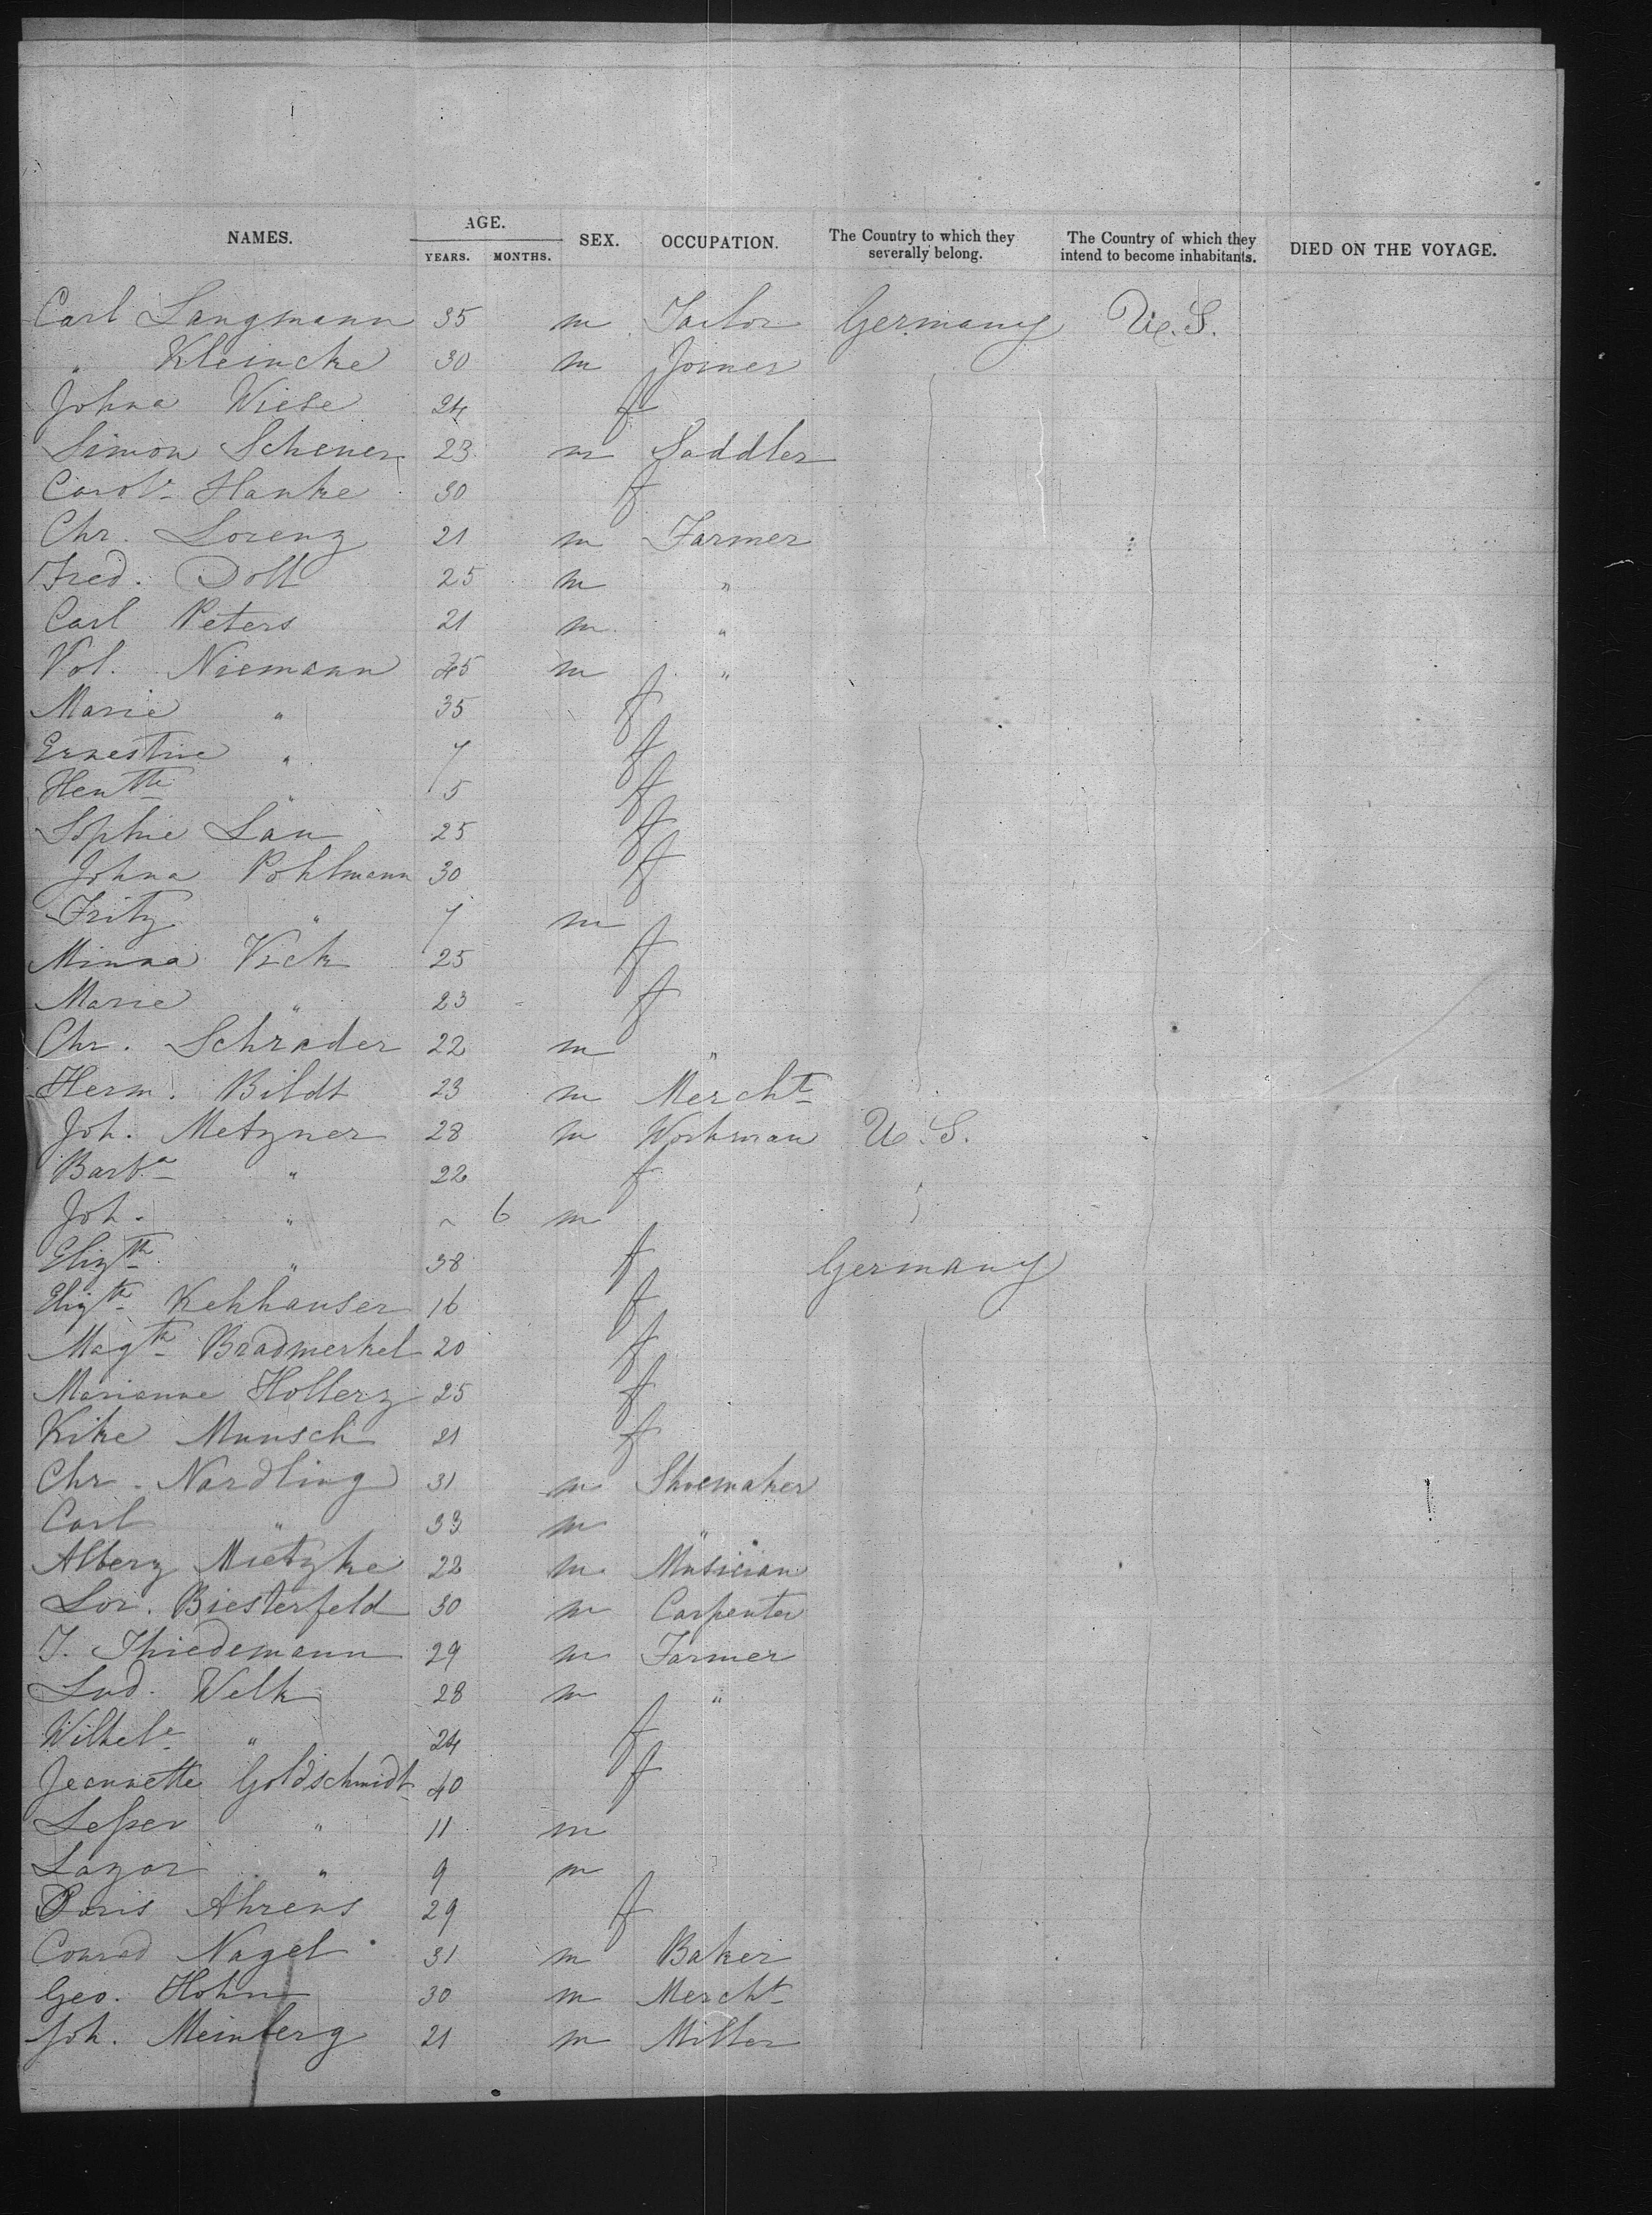 NAMES. AGE. YEARS. MONTHS. SEX. OCCUPATION. The Country to which they severally belong. The Country of which they intend to become inhabitants. DIED ON THE VOYAGE.
Carl Langmann 35 m Tailor Germany U.S.
" Kleincke 30 m Joiner
Johna Wiese 24 f
Simon Scheuer 23 m Saddler
Carole Hanke 30 f
Chr. Lorenz 21 m Farmer
Fred. Doll 25 m "
Carl Peters 21 m "
Vol. Niemann 45 m "
Marie " 35 f
Ernestine " 7 f
Hentte " 5 f
Sophie Lau 25 f
Johna Pohlmann 30 f
Fritz " 7 m
Minna Vick 25 f
Marie " 23 f
Chr. Schrader 22 m "
Herm. Bildt 23 m Mercht
Joh. Metzner 28 m Workman U.S.
Barba " 22 f
Joh. " 6 m
Elizth " 38 f Germany
Elizth Kehhauser 16 f
Magth Bradmerkel 20 f
Marianne Hollerz 25 f
Rike Munsch 21 f
Chr. Nardling 31 m Shoemaker
Carl " 33 m "
Alberz Mietzke 22 m Musician
Lor. Biesterfeld 30 m Carpenter
J. Thiedemann 29 m Farmer
Lud. Welk 28 m "
Wilhele " 24 f
Jeannette Goldschmidt 40 f
Lesser " 11 m
Lazar " 9 m
Doris Ahrens 29 f
Conrad Nagel 31 m Baker
Geo. Hohn 30 m Mercht
Joh. Meinberg 21 m Miller